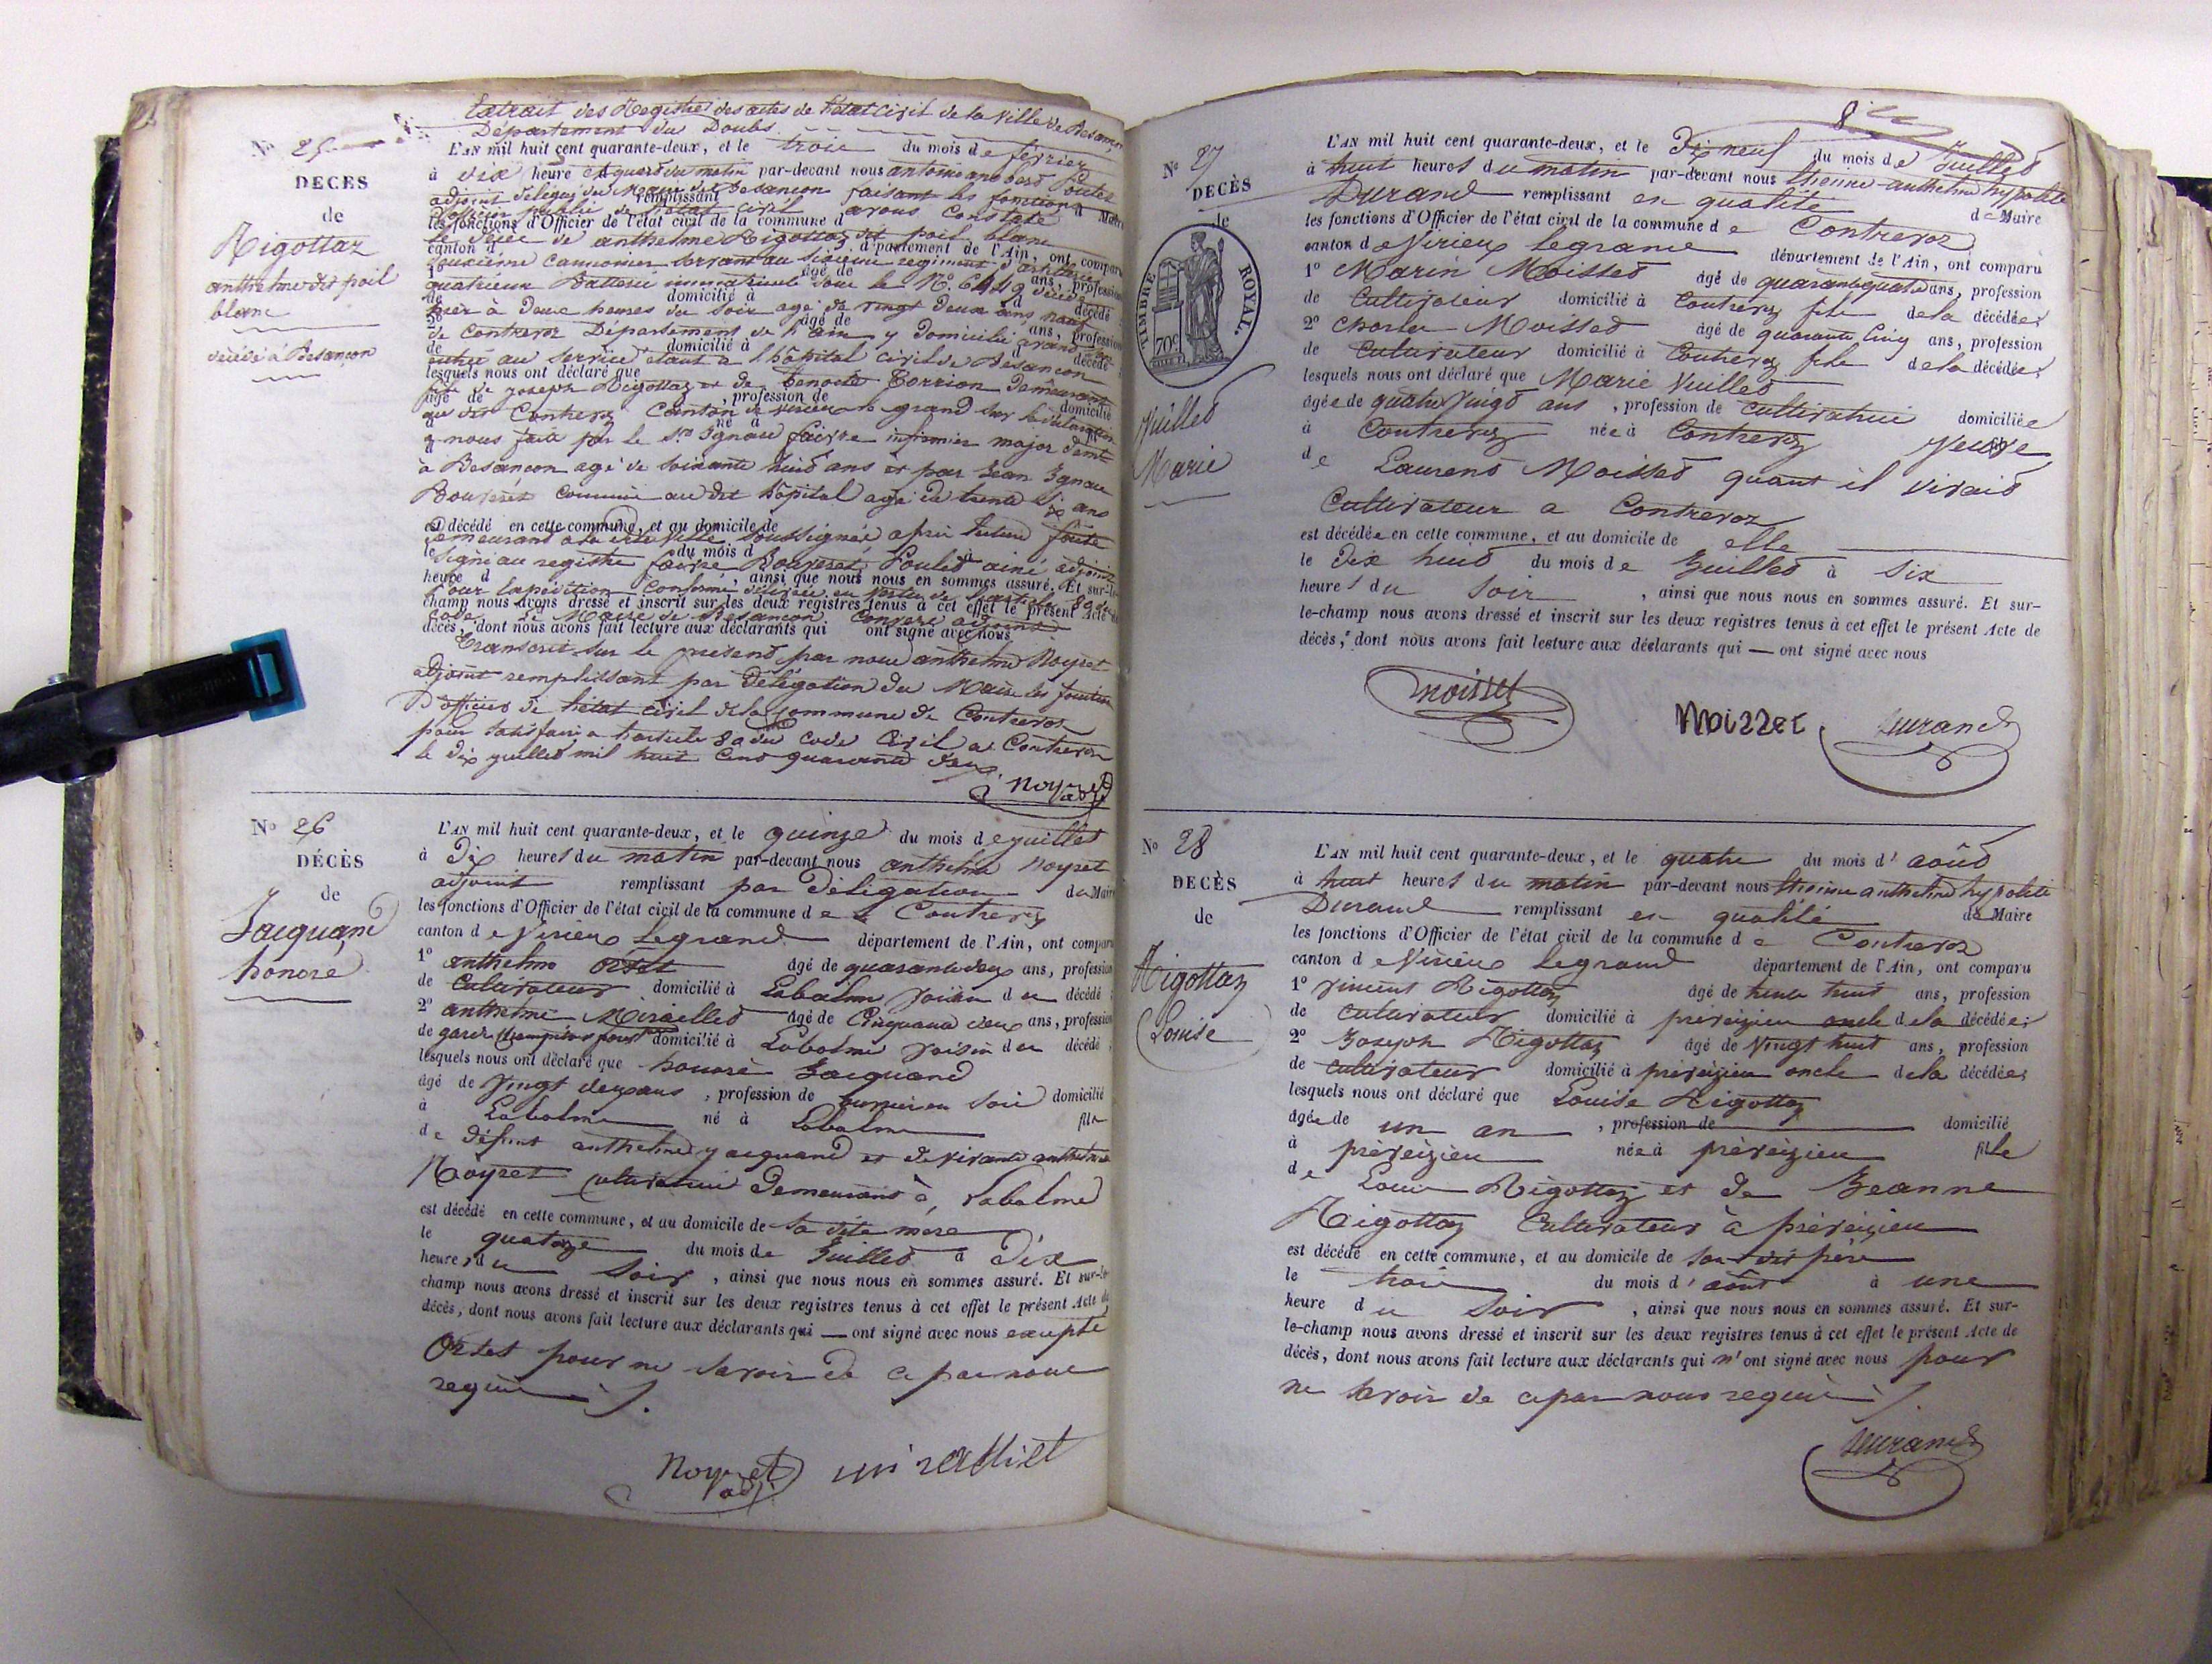 Extrait des Registres des actes de l'état civil de la Ville de Besançon
Département du Doubs
N° 25
DECES
de
Rigottaz
anthelme dit poil
blanc
décédé à Besançon
L'AN mil huit cent quarante-deux, et le trois du mois de février
à dix heure et quard du matin par-devant nous antoine
adjoint délégué du Maire de Besançon faisant les fonctions
remplissant d Maire
d'officier public de l'état civil avons constaté
les fonctions d'Officier de l'état civil de la commune d
le décès de anthelme Rigottaz dit poil blanc
canton d , département de l'Ain, ont comparu
deuxième cannonier servant au sixième regiment d'artillerie
1° âgé de ans, profession
quatrième Batterie immatriculé sous le N°. 6449 décédé
de domicilié à d décédé
hier à Deux heures du soir agé de vingt deux ans natif
2° âgé de ans, profession
de Contrevoz Département de l'ain y Domicilié avant son
de domicilié à d décédé
entrée au service étant à l'hôpital civil de Besançon
lesquels nous ont déclaré que
fils de joseph Rigottaz et de Benoite Corrion Demeurant
âgé de , profession de domicilié
au dit Contrevoz Canton de virieu le grand sur la déclaration
à né à
à nous faite par le Sr. Ignace faivre infirmier major demt
à Besançon agé de soixante huit ans et par Jean Ignace
Bouveret commis au dit hôpital agé de trente six ans
est décédé en cette commune, et au domicile de
demeurant à la dite Ville soussignés après lecture faite
le du mois d à
Signé au registre faivre Bouveret, Poulet ainé adjoint
heure d , ainsi que nous nous en sommes assuré. Et sur-le-
Pour expédition Conforme délivrée en vertu de l'article 80 du
champ nous avons dressé et inscrit sur les deux registres tenus à cet effet le présent Acte de
Code Le Maire de Besançon
décès, dont nous avons fait lecture aux déclarants qui ont signé avec nous
Transcrit sur le present par nous anthelme Noyret
adjoint remplissant par délégation du Maire les fonctions
D'officier de l'etat civil de la Commune de Contrevoz
pour satisfaire a l'article 80 du Code Civil a Contrevoz
le dix juillet mil huit Cent quarante deux.
Noyret adj
N° 26
DÉCÈS
de
Jacquand
honoré
L'AN mil huit cent quarante-deux, et le quinze du mois de juillet
à Dix heures du matin par-devant nous anthelme Noyret
adjoint remplissant par délégation du Maire
les fonctions d'Officier de l'état civil de la commune de Contrevoz
canton de Virieu Legrand département de l'Ain, ont comparu
1° anthelme Ortet âgé de quarante deux ans, profession
de Cultivateur domicilié à Labalme voisin du décédé ;
2° anthelme Miraillet âgé de Cinquante deux ans, profession
de garde champêtre domicilié à Labalme voisin du décédé ,
lesquels nous ont déclaré que honoré Jacquand
âgé de Vingt deux ans , profession de domicilié
à Labalme né à Labalme fils
de défunt anthelme jacquand et de vivante anthelmette
Noyret cultivatrice Demeurant à Labalme
est décédé en cette commune, et au domicile de sa dite mère
le quatorze du mois de Juillet à Dix
heures du Soir , ainsi que nous nous en sommes assuré. Et sur-le-
champ nous avons dressé et inscrit sur les deux registres tenus à cet effet le présent Acte de
décès, dont nous avons fait lecture aux déclarants qui — ont signé avec nous excepté
Ortet pour ne Savoir de ce par nous
requis ./.
Noyret adj. miralliet
8
N° 27
DÉCÈS
de
TIMBRE ROYAL.
70c
Vuillet
Marie
L'AN mil huit cent quarante-deux, et le Dix neuf du mois de Juillet
à huit heures du matin par-devant nous Etienne anthelme hypolite
Durand remplissant en qualité de Maire
les fonctions d'Officier de l'état civil de la commune de Contrevoz
canton de Virieu Legrand département de l'Ain, ont comparu
1° Marin Moisset âgé de quarante quatre ans, profession
de Cultivateur domicilié à Contrevoz fils de la décédée;
2° Charles Moisset âgé de quarante Cinq ans, profession
de Cultivateur domicilié à Contrevoz fils de la décédée;
lesquels nous ont déclaré que Marie Vuillet
âgée de quatre Vingt ans , profession de cultivatrice domiciliée
à Contrevoz née à Contrevoz Veuve
de Laurens Moisset quant il vivait
Cultivateur a Contrevoz
est décédée en cette commune, et au domicile de elle
le Dix huit du mois de Juillet à Six
heures du Soir , ainsi que nous nous en sommes assuré. Et sur-
le-champ nous avons dressé et inscrit sur les deux registres tenus à cet effet le présent Acte de
décès, dont nous avons fait lecture aux déclarants qui — ont signé avec nous
moisset
Moizzet Durand
N° 28
DECÈS
de
Rigottaz
Louise
L'AN mil huit cent quarante-deux, et le quatre du mois d' août
à huit heures du matin par-devant nous Etienne anthelme hypolite
Durand remplissant en qualité de Maire
les fonctions d'Officier de l'état civil de la commune de Contrevoz
canton de Virieu Legrand département de l'Ain, ont comparu
1° vincent Rigottaz âgé de trente huit ans, profession
de cultivateur domicilié à preveizieu oncle de la décédée;
2° Joseph Rigottaz âgé de Vingt huit ans, profession
de cultivateur domicilié à preveizieu oncle de la décédée;
lesquels nous ont déclaré que Louise Rigottaz
âgée de un an , profession de domicilié
à preveizieu née à preveizieu fille
de Louis Rigottaz et de Jeanne
Rigottaz Cultivateur à preveizieu
est décédé en cette commune, et au domicile de son dit père
le trois du mois d'août à une
heure du Soir , ainsi que nous nous en sommes assuré. Et sur-
le-champ nous avons dressé et inscrit sur les deux registres tenus à cet effet le présent Acte de
décès, dont nous avons fait lecture aux déclarants qui n'ont signé avec nous pour
ne savoir de ce par nous requis ./.
Durand